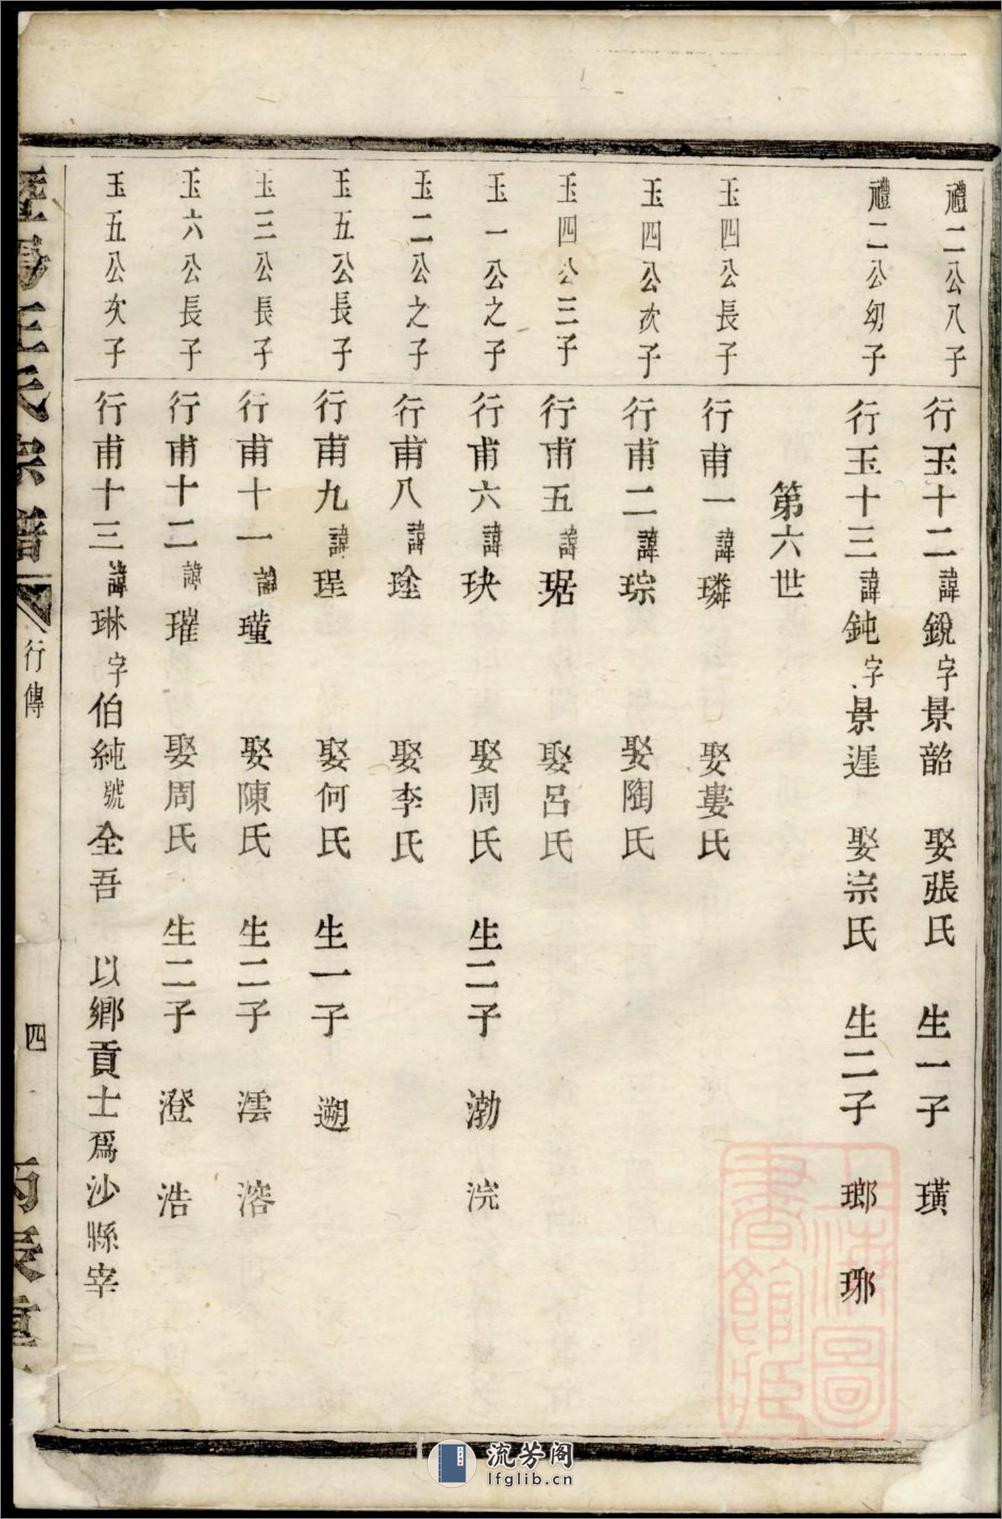 禮二公八子 行玉十二 諱銳 字景韶 娶張氏 生一子 璜
禮二公幼子 行玉十三 諱鈍 字景遲 娶宗氏 生二子 瑯 琊
第六世
玉四公長子 行甫一 諱璘 娶婁氏
玉四公次子 行甫二 諱琮 娶陶氏
玉四公三子 行甫五 諱琚 娶呂氏
玉一公之子 行甫六 諱玦 娶周氏 生二子 渤 浣
玉二公之子 行甫八 諱㻌 娶李氏
玉五公長子 行甫九 諱珵 娶何氏 生一子 遡
玉三公長子 行甫十一 諱瑾 娶陳氏 生二子 澐 溶
玉六公長子 行甫十二 諱璀 娶周氏 生二子 澄 浩
玉五公次子 行甫十三 諱琳 字伯純 號全吾 以鄉貢士爲沙縣宰
王氏宗譜
行傳
四
丙辰重
上海圖書館藏
流芳阁
lfglib.cn